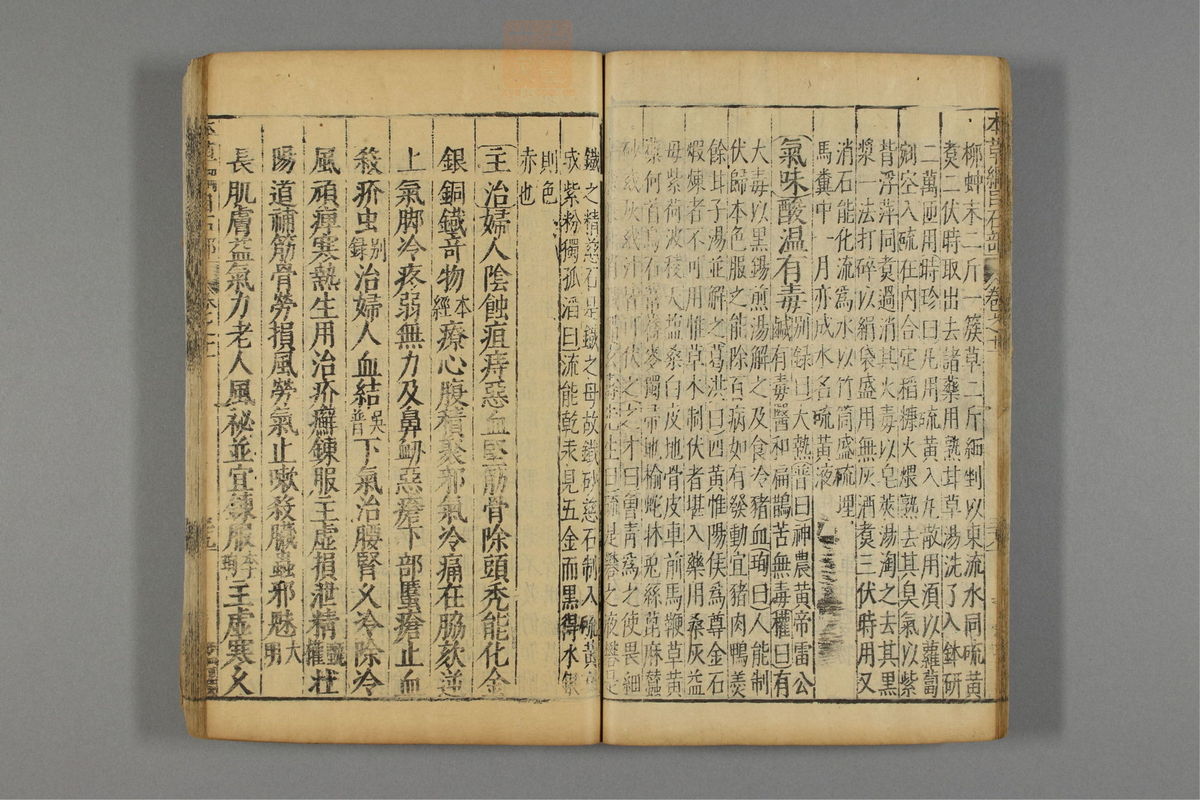 本草綱目石部 卷之十一
柳蚛末二斤一簇草二斤細剉以東流水同硫黃
煑二伏時取出去諸藥用熟甘草湯洗了入鉢研
二萬匝用時珍曰凡用硫黃入丸散用須以蘿蔔
剜空入硫在內合定稻糠火煨熟去其臭氣以紫
背浮萍同煑過消其火毒以皂莢湯淘之去其黑
漿一法打碎以絹袋盛用無灰酒煑三伏時用又
消石能化硫爲水以竹筒盛硫埋
馬糞中一月亦成水名硫黃液
氣味酸温有毒別録曰大熱普曰神農黃帝雷公
鹹有毒醫和扁鵲苦無毒權曰有
大毒以黑錫煎湯解之及食冷豬血珣曰人能制
伏歸本色服之能除百病如有發動宜豬肉鴨羮
餘甘子湯並解之葛洪曰四黃惟陽侯爲尊金石
煆煉者不可用惟草木制伏者堪入藥用桑灰益
母紫荷波稜天鹽桑白皮地骨皮車前馬鞭草黃
蘗何首烏石韋蕎麥獨帚地榆蛇牀兔絲萆麻蠶
砂或灰或汁皆可伏之之才曰曾青爲之使畏細
生曰硫是礬之液礬是
鐵之精慈石是鐵之母故鐵砂慈石制入硫黃
成紫粉獨孤滔曰流能乾汞見五金而黑得水銀
則色
赤也
主治婦人陰蝕疽痔惡血堅筋骨除頭禿能化金
銀銅鐵竒物本經療心腹積聚邪氣冷痛在脇欬逆
上氣脚冷疼弱無力及鼻衂惡瘡下部䘌瘡止血
殺疥虫別録治婦人血結吳普下氣治腰腎久冷除冷
風頑痺寒熱生用治疥癬鍊服主虛損泄精甄權壯
陽道補筋骨勞損風勞氣止嗽殺臟蟲邪魅大明
長肌膚益氣力老人風祕並宜鍊服李珣主虛寒久